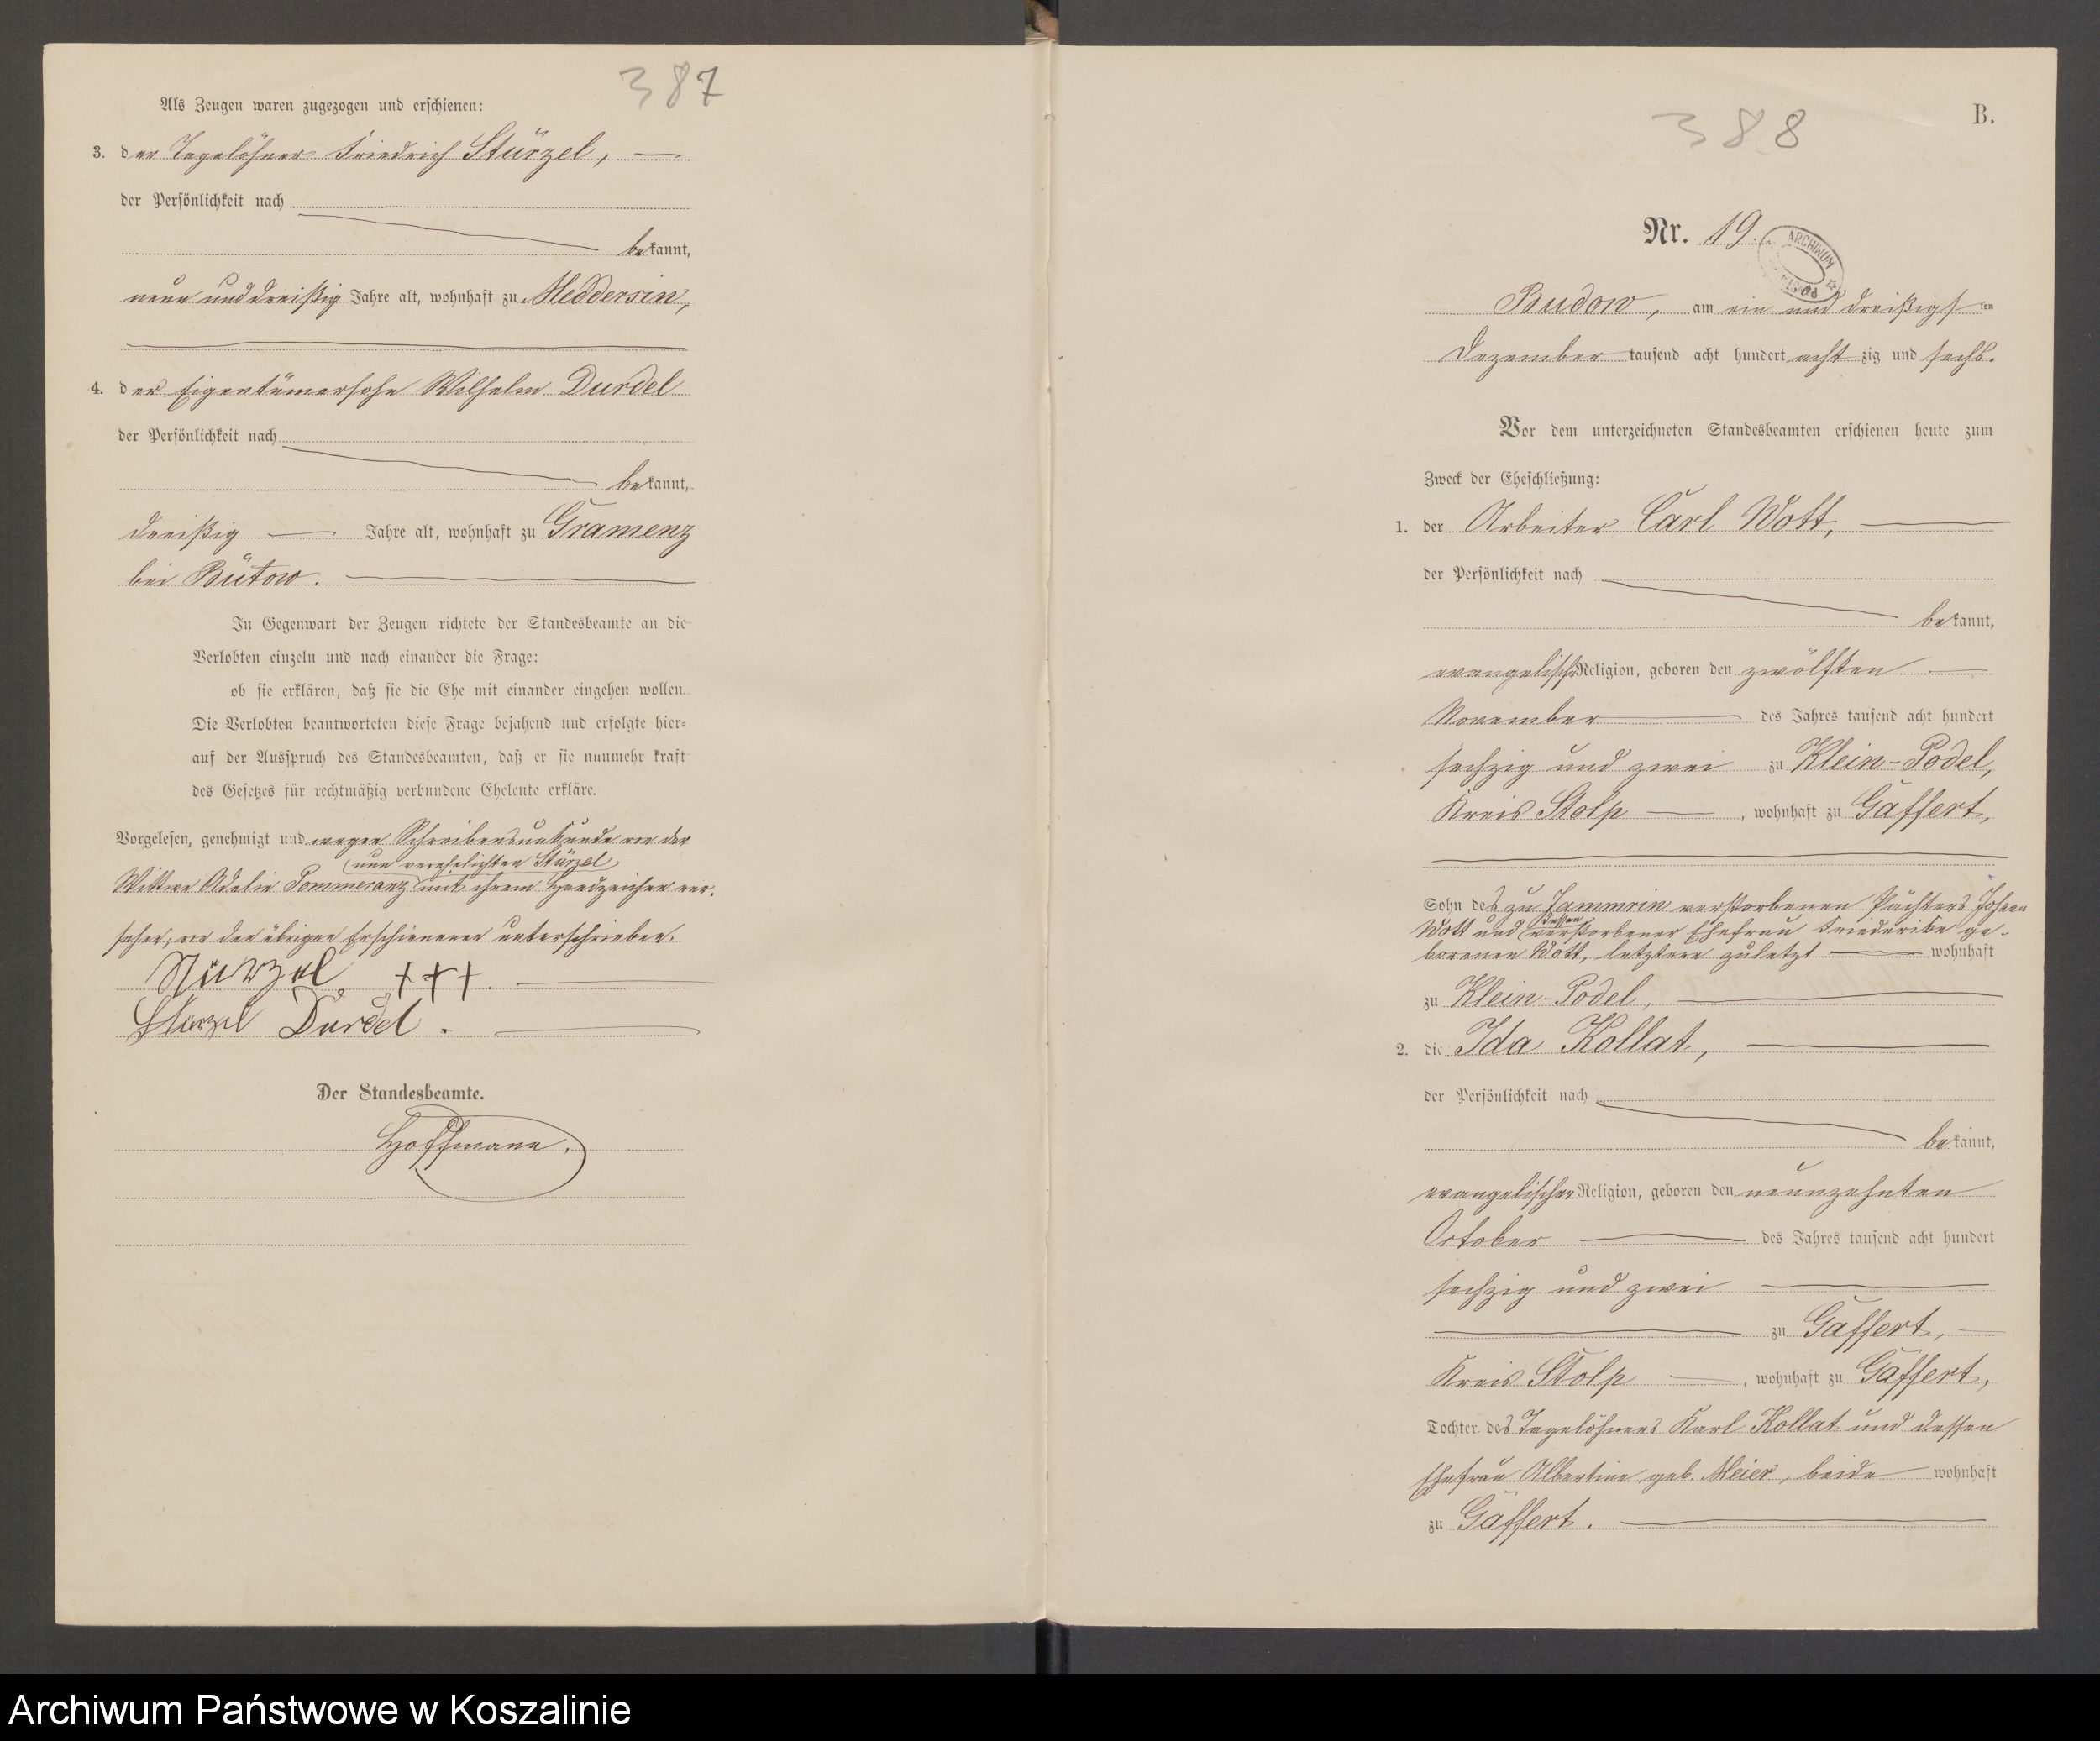 387
Als Zeugen waren zugezogen und erschienen:
3. der Tagelöhner Friedrich Stürzel,
der Persönlichkeit nach
bekannt,
neun und dreißig Jahre alt, wohnhaft zu Meddersin,
4. der Eigentümersohn Wilhelm Durdel
der Persönlichkeit nach
bekannt,
dreißig Jahre alt, wohnhaft zu Gramenz
bei Bütow.
In Gegenwart der Zeugen richtete der Standesbeamte an die
Verlobten einzeln und nach einander die Frage:
ob sie erklären, daß sie die Ehe mit einander eingehen wollen.
Die Verlobten beantworteten diese Frage bejahend und erfolgte hier-
auf der Ausspruch des Standesbeamten, daß er sie nunmehr kraft
des Gesetzes für rechtmäßig verbundene Eheleute erkläre.
Vorgelesen, genehmigt und wegen Schreibensunkunde von der
nun verehelichten Stürzel
Wittwe Adelie Pommeranz mit ihrem Handzeichen ver-
sehen; von den übrigen Erschienenen unterschrieben.
Stürzel +++.
Stürzel Durdel.
Der Standesbeamte.
Hoffmann.
388
B.
Nr. 19.
ARCHIWUM
Budow, am ein und dreißigsten
Dezember tausend acht hundert achtzig und sechs.
Vor dem unterzeichneten Standesbeamten erschienen heute zum
Zweck der Eheschließung:
1. der Arbeiter Carl Wott,
der Persönlichkeit nach
bekannt,
evangelischer Religion, geboren den zwölften
November des Jahres tausend acht hundert
sechzig und zwei zu Klein-Podel,
Kreis Stolp, wohnhaft zu Gaffert,
Sohn des zu Jammrin verstorbenen Pächters Johann
dessen
Wott und verstorbener Ehefrau Friederike ge-
borenen Wott, letztere zuletzt wohnhaft
zu Klein-Podel,
2. die Ida Kollat,
der Persönlichkeit nach
bekannt,
evangelischer Religion, geboren den neunzehnten
October des Jahres tausend acht hundert
sechzig und zwei
zu Gaffert,
Kreis Stolp, wohnhaft zu Gaffert,
Tochter des Tagelöhners Karl Kollat und dessen
Ehefrau Albertine geb. Meier, beide wohnhaft
zu Gaffert.
Archiwum Państwowe w Koszalinie